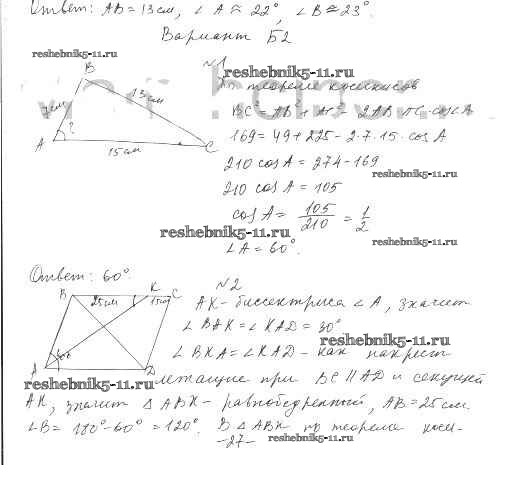 Ответ: AB = 13 см, ∠A ≈ 22°, ∠B ≈ 23°.
Вариант Б2
reshebnik5-11.ru
№1
reshebnik5-11.ru
По теореме косинусов
B
7см
13 см
BC² = AB² + AC² - 2AB·AC·cosA
169 = 49 + 225 - 2·7·15·cosA
A
?
15см
C
210 cosA = 274 - 169
reshebnik5-11.ru
210 cosA = 105
cosA = 105/210 = 1/2
reshebnik5-11.ru
reshebnik5-11.ru
∠A = 60°.
Ответ: 60°.
№2
B
25см
K
15см
C
AK - биссектриса ∠A, значит
∠BAK = ∠KAD = 30°
reshebnik5-11.ru
∠BKA = ∠KAD - как накрест
A
60
D
reshebnik5-11.ru
лежащие при BC || AD и секущей
AK, значит △ABK - равнобедренный, AB = 25 см.
∠B = 180° - 60° = 120°. В △ABK по теореме коси-
-27-
reshebnik5-11.ru